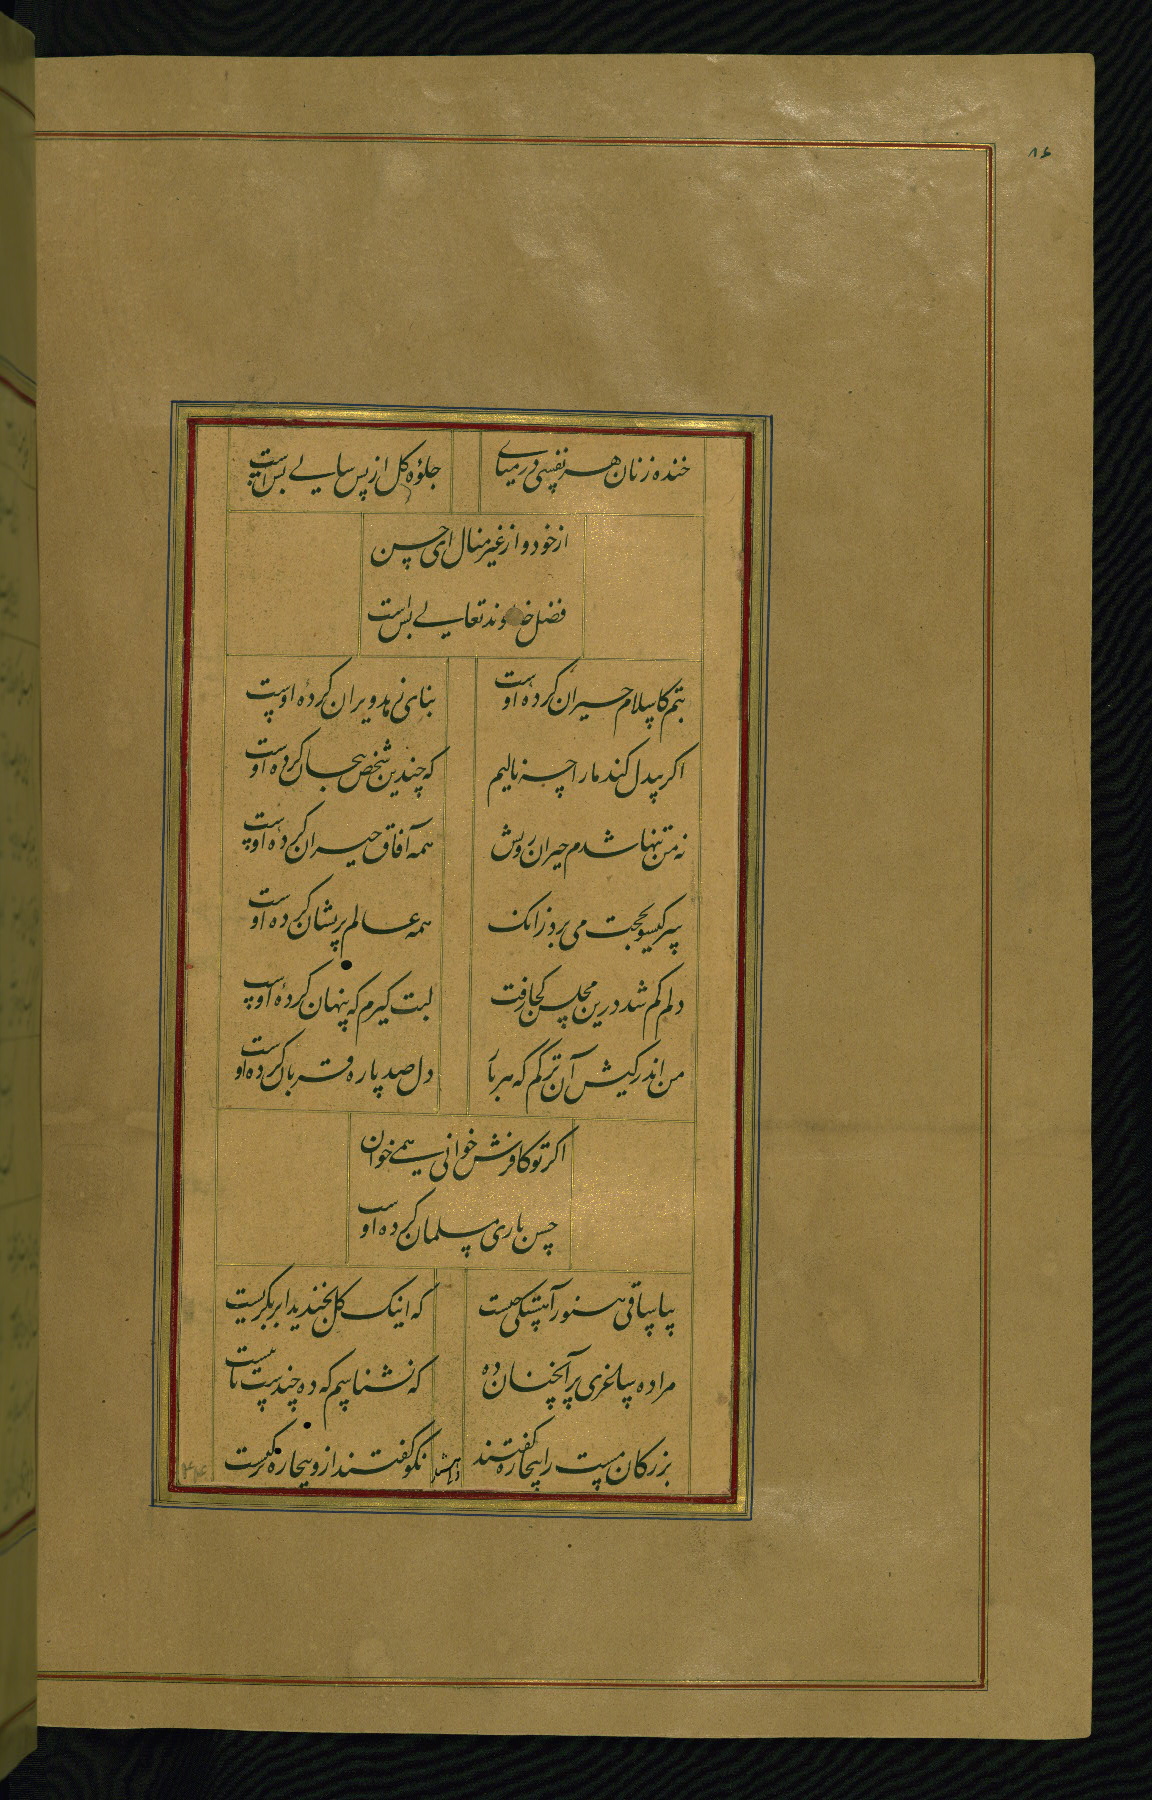 ۸۶
خنده زنان هر نفسی در میای
جلوهٔ گل از پس سالی بس است
از خود و از غیر منال ای حسن
فضل خداوند تعالی بس است
بتم کاسلام حیران کرده اوست
بنای زهد ویران کرده اوست
اگر بیدل کند ما را چه نالیم
که چندین شخص بیجان کرده اوست
نه من تنها شدم حیران رویش
همه آفاق حیران کرده اوست
سر گیسو بحجت می برد زانک
همه عالم پریشان کرده اوست
دلم گم شد درین مجلس کجا رفت
لبت گیرم که پنهان کرده اوست
من اندر کیش آن ترکم که هر بار
دل صد پاره قربان کرده اوست
اگر تو کافرش خوانی همی خوان
حسن باری مسلمان کرده اوست
بیا ساقی هنوز آهستگی چیست
که اینک گل بخندید ابر بگریست
مرا ده ساغری پر آنچنان ده
که نشناسم که ده چندست تا بیست
بزرگان مست را بیچاره گفتند
نگو گفتند ازو بیچاره تر کیست